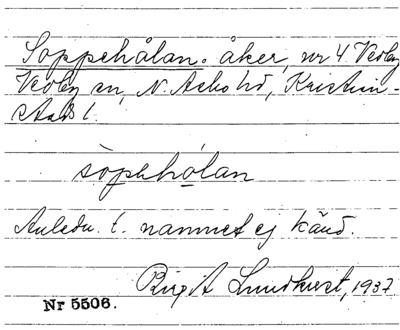 Soppehålan. åker, nr 4 Vedby
Vedby sn, N. Åsbo hd, Kristian-
stads l.
sòpehòlan
Anledn. t. namnet ej känd.
Birgit Lundkvist, 1937
Nr 5506.